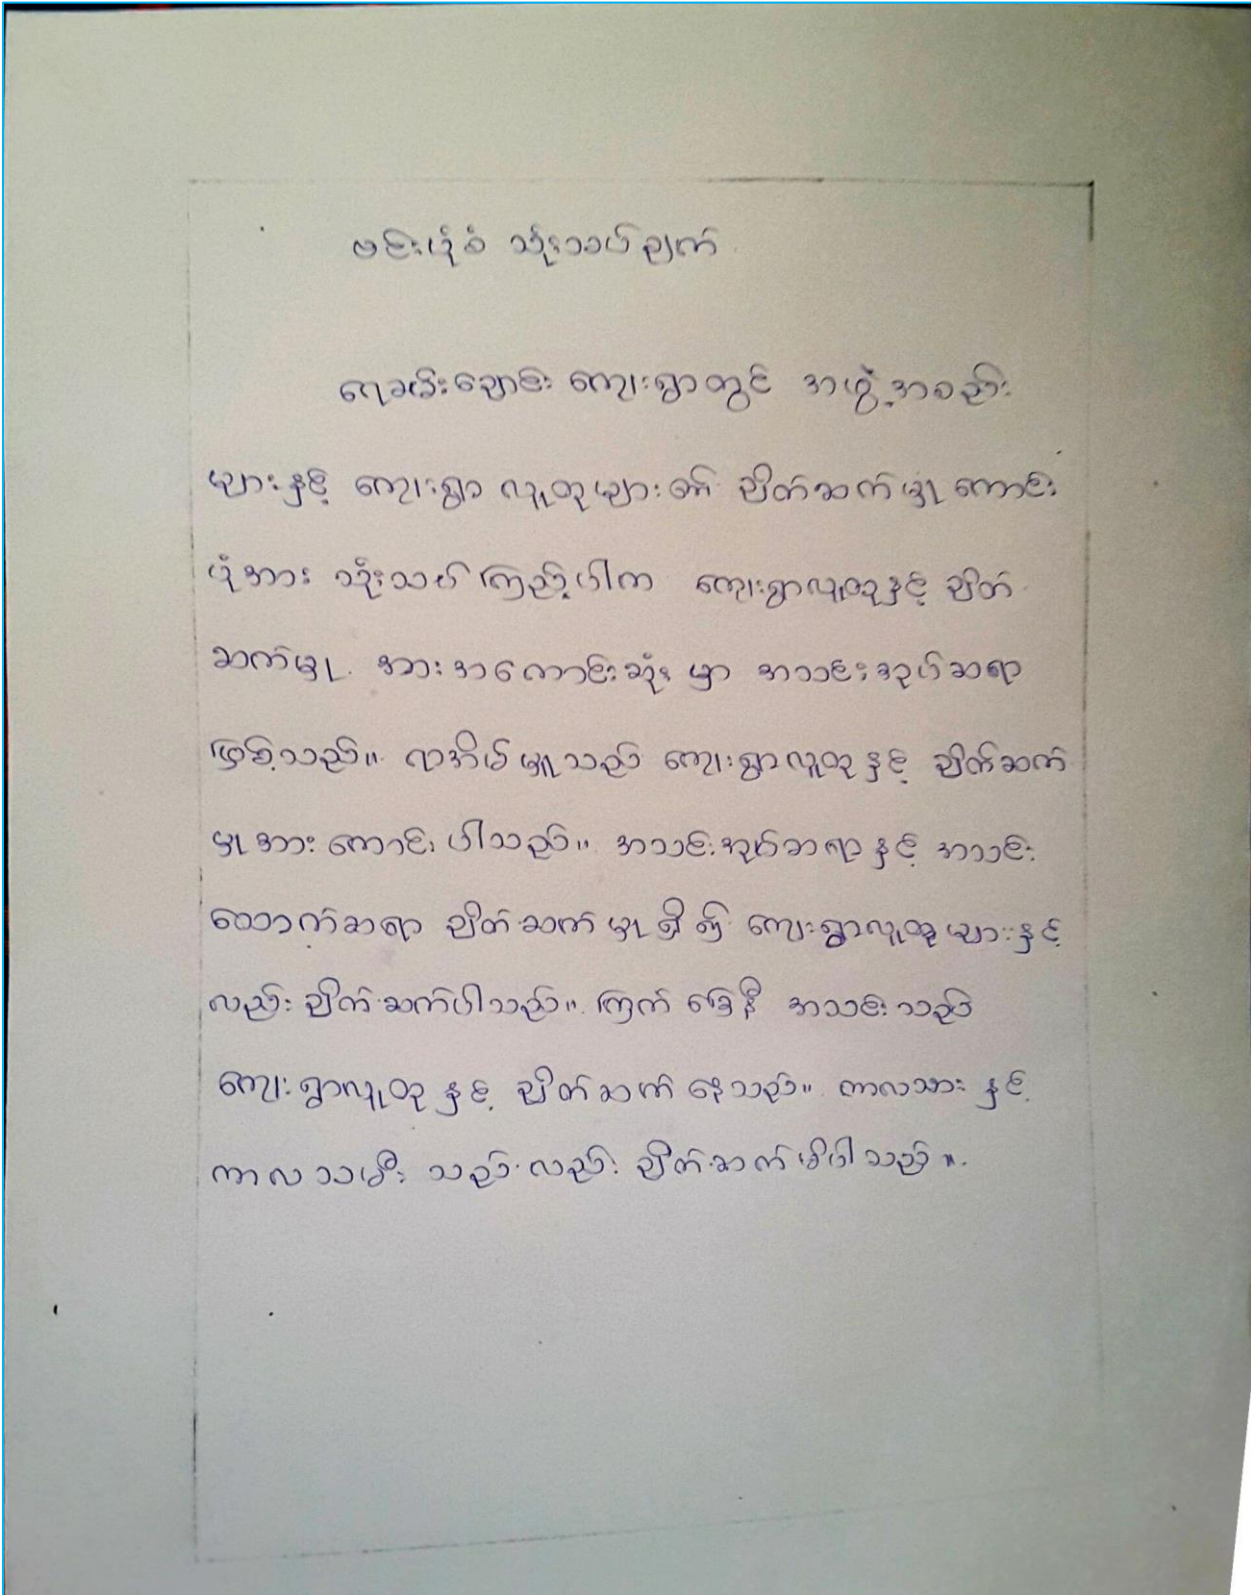 ဗင်းပုံစံ သုံးသပ်ချက်
ရေခမ်းချောင်း ကျေးရွာတွင် အဖွဲ့အစည်း
များနှင့် ကျေးရွာ လူထုများ၏ ချိတ်ဆက်မှု ကောင်း
ပုံအား သုံးသပ်ကြည့်ပါက ကျေးရွာလူထုနှင့် ချိတ်
ဆက်မှု အား အကောင်းဆုံး မှာ အသင်းအုပ်ဆရာ
ဖြစ်သည်။ ရာအိမ်မှူးသည် ကျေးရွာလူထု နှင့် ချိတ်ဆက်
မှု အား ကောင်းပါသည်။ အသင်းအုပ်ဆရာ နှင့် အသင်း
ထောက်ဆရာ ချိတ်ဆက်မှု ရှိ၍ ကျေးရွာလူထုများနှင့်
လည်း ချိတ်ဆက်ပါသည်။ ကြက်ခြေနီ အသင်းသည်
ကျေးရွာလူထု နှင့် ချိတ်ဆက် နေသည်။ ကာလသား နှင့်
ကာလသမီး သည် လည်း ချိတ်ဆက်မိပါသည်။